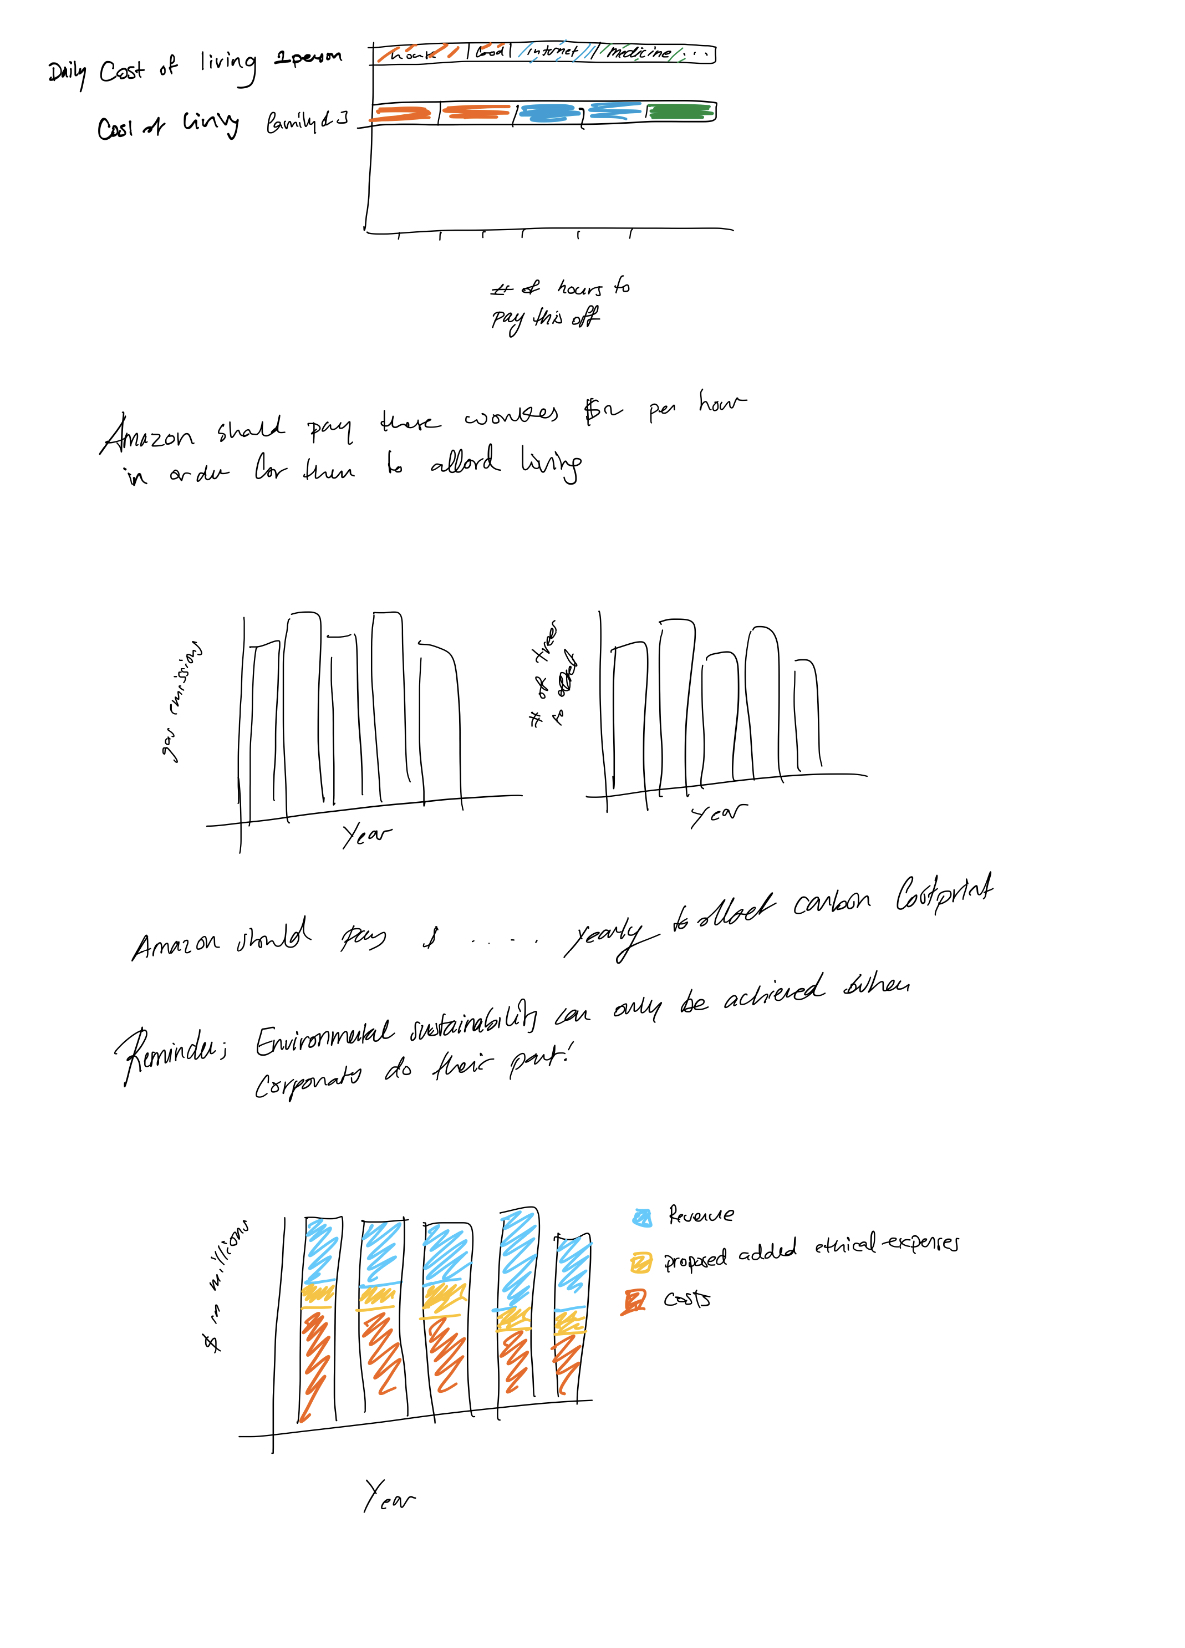 Daily Cost of living 1person
house food internet medicine ...
Cost of living family of 3
# of hours to
pay this off
Amazon should pay these workes $ per hour
in order for them to afford living
gas emissions
Year
# of trees
to offset
Year
Amazon should pay $ ..... yearly to offset carbon footprint
Reminder; Environmental sustainability can only be achieved when
Corporats do their part!
$ in millions
Revenue
proposed added ethical expenses
costs
Year